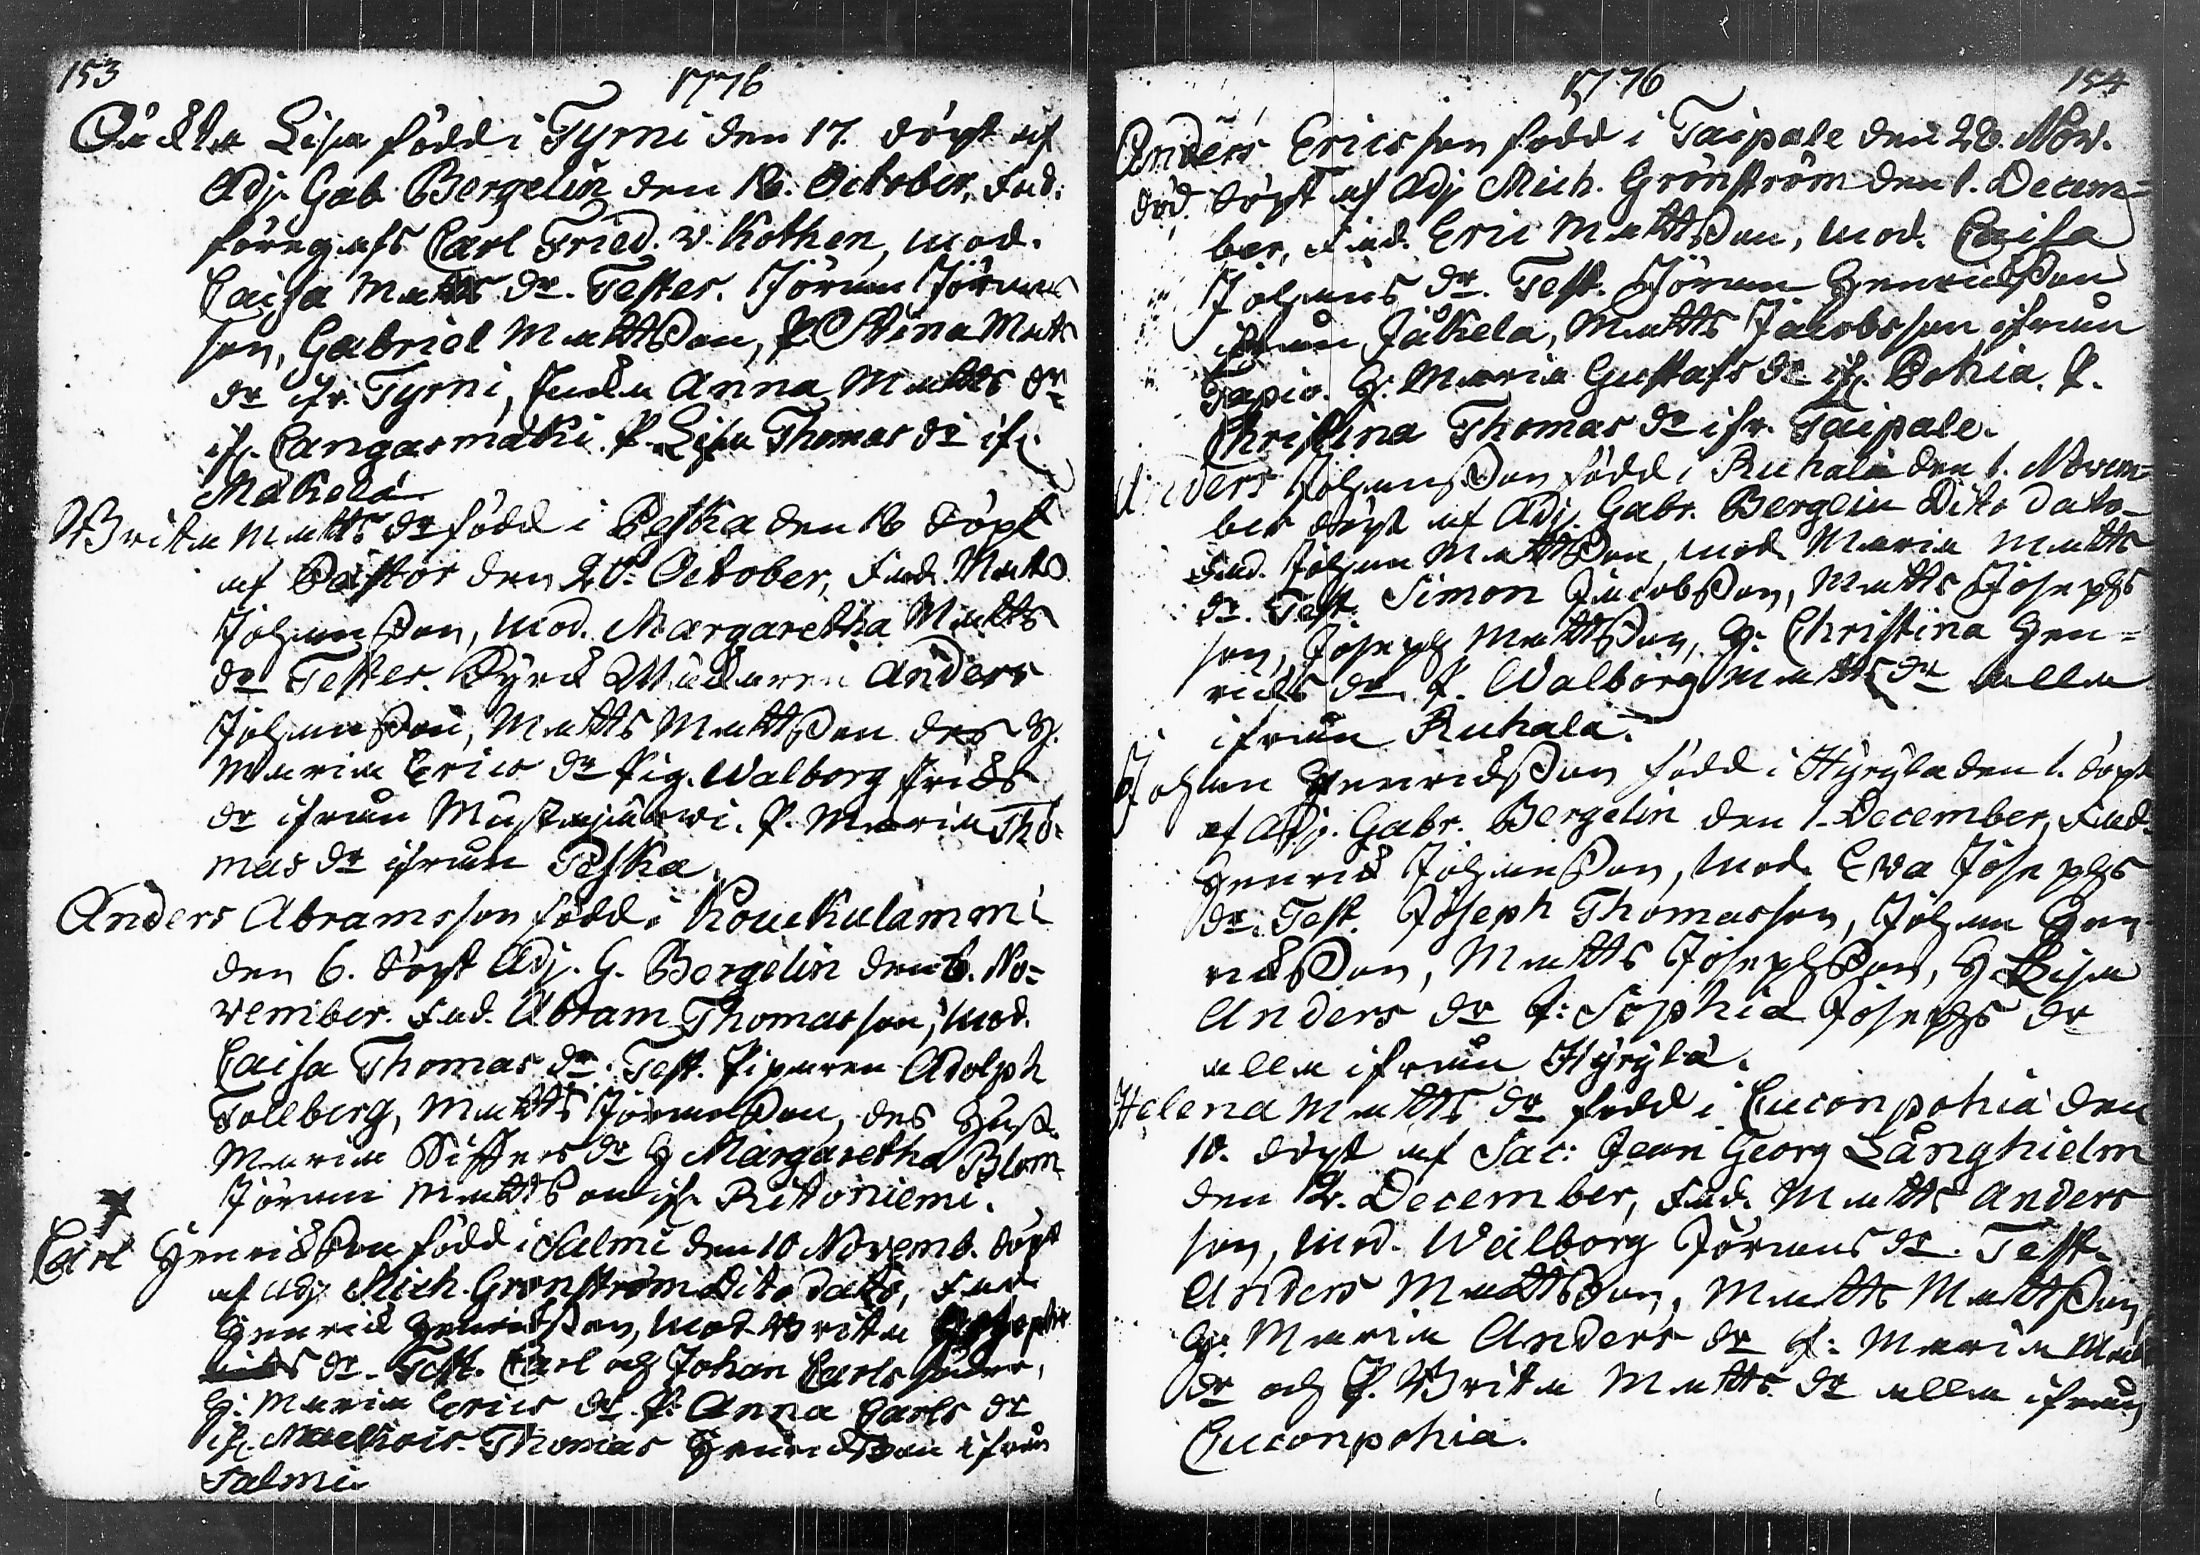 153
1776
Oäckta Lisa född i Tyrni den 17. döpt af
Adj. Gab. Bergelin den 18. October, Fad.
föreg. afs. Carl Fried. v. Kothen, mod.
Caisa Matts dr. Testes. Jöran Jörans
son, Gabriel Mattsson, P. Stina Matts
dr ifr. Tyrni, Anna Matts dr
if. Cangasmäki. P. Lisa Thomas dr if.
Mäkelä
Brita Matts dr född i Peska den 18 döpt
af Pastor den 20. October, Fad. Matts
Johansson, mod. Margaretha Matts
dr Testes. Kyrck Wäcktaren Anders
Johansson, Matts Mattsson des H.
Maria Erics dr Pig. Walborg Fricks
dr ifrån Mustajärwi. P. Maria Tho-
mas dr ifrån Peska.
Anders Abramsson född i Koukulammi
den 6. döpt Adj. G. Bergelin den 8. No-
vember. Fad. Abram Thomasson, mod.
Caisa Thomas dr. Test. Piparen Adolph
Tollberg, Matts Jöransson, des Hust.
Maria Siffers dr H Margaretha Blom
Jöran Mattsson if. Ritoniemi.
Carl Henricsson född i Salmi den 10 Novemb. döpt
af Adj. Mich. Grönström dito dato, Fad.
Henric Henricsson, mod. Brita Josephs
dr. Test. Carl och Johan Carls söner,
H. Maria Erics dr. P. Anna Carls dr
if. Thomas Henricsson ifrån
Salmi
1776
154
Anders Ericsson född i Taipale den 28. Nov.
död. döpt af Adj Mich. Grönström den 1. Decem-
ber, Fad. Eric Mattsson, mod. Caisa
Johans dr. Test. Jöran Henricsson
ifrån Jäkelä, Matts Jacobsson ifrån
Tapio. H. Maria Gustafs dr if. Pohia. P.
Christina Thomas dr ifr. Taipale.
Anders Johansson född i Ruhala den 1. Novem-
ber döpt af Adj. Gabr. Bergelin Dito dato
Fad. Johan Mattsson, mod. Maria Matts
dr. Test. Simon Jacobsson, Matts Josephs
son, Joseph Mattsson, H. Christina Hen-
rics dr P. Walborg Matts dr alla
ifrån Ruhala.
Johan Henricsson född i Hyrylä den 1. döpt
af Adj. Gabr. Bergelin den 1. December, Fad.
Henric Johansson, mod. Eva Josephs
dr. Test. Joseph Thomasson, Johan Hen-
ricsson, Matts Josephsson, H Lisa
Anders dr P: Sophia Josephs dr
alla ifrån Hyrylä.
Helena Matts dr född i Euconpohia den
10. döpt af Sac: Jean Georg Långhielm
den 12. December, Fad. Matts Anders
son, mod. Walborg Jörans dr. Test.
Anders Mattsson, Matts Mattsson
H. Maria Anders dr P: Maria Matts
dr och P. Brita Matts dr alla ifrån
Euconpohia.